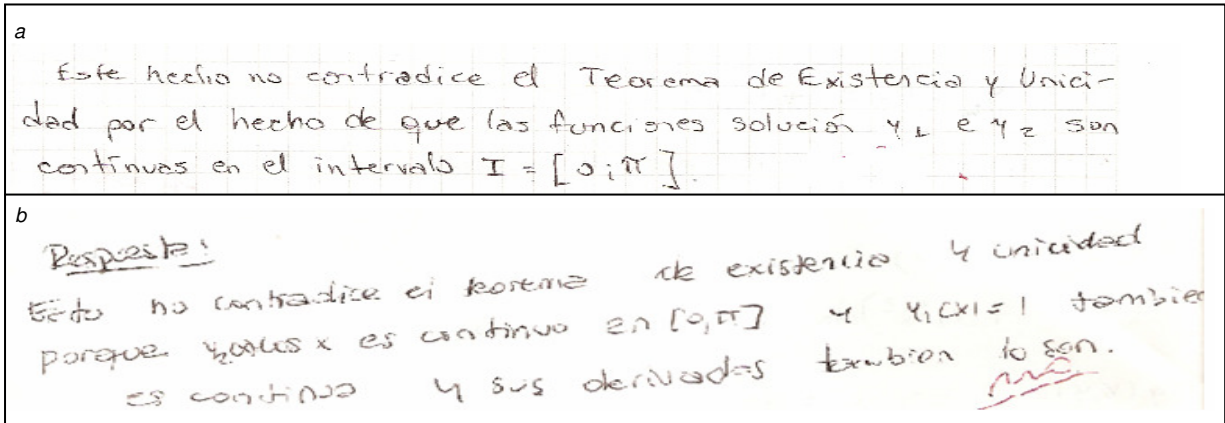 a
Este hecho no contradice el Teorema de Existencia y Unici-
dad por el hecho de que las funciones solución y1 e y2 son
continuas en el intervalo I = [0;π].
b
Respuesta:
Esto no contradice el teorema de existencia y unicidad
porque x es continuo en [0,π] y y1(x)=1 tambien
es continua y sus derivadas tambien lo son.